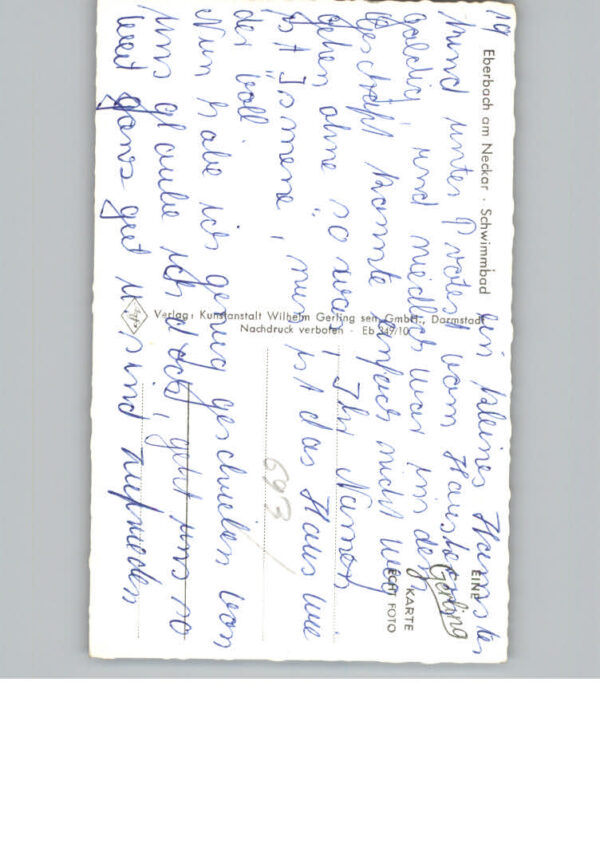 19 ein kleines Hamster
kind unter Protest vom
goldig, und niedlich war im
Geschäft konnte einfach nicht weg
gehen ohne "so was", Ihr Namen
ist "Ismene", nun ist das Haus wie
der voll
Nun habe ich genug geschrieben von
uns glaube ich doch, geht uns so
weit ganz gut u. sind zufrieden
Eberbach am Neckar · Schwimmbad
Verlag: Kunstanstalt Wilhelm Gerling sen. GmbH., Darmstadt
Nachdruck verboten · Eb 349/10
EINE
Gerling
KARTE
ECHT FOTO
693